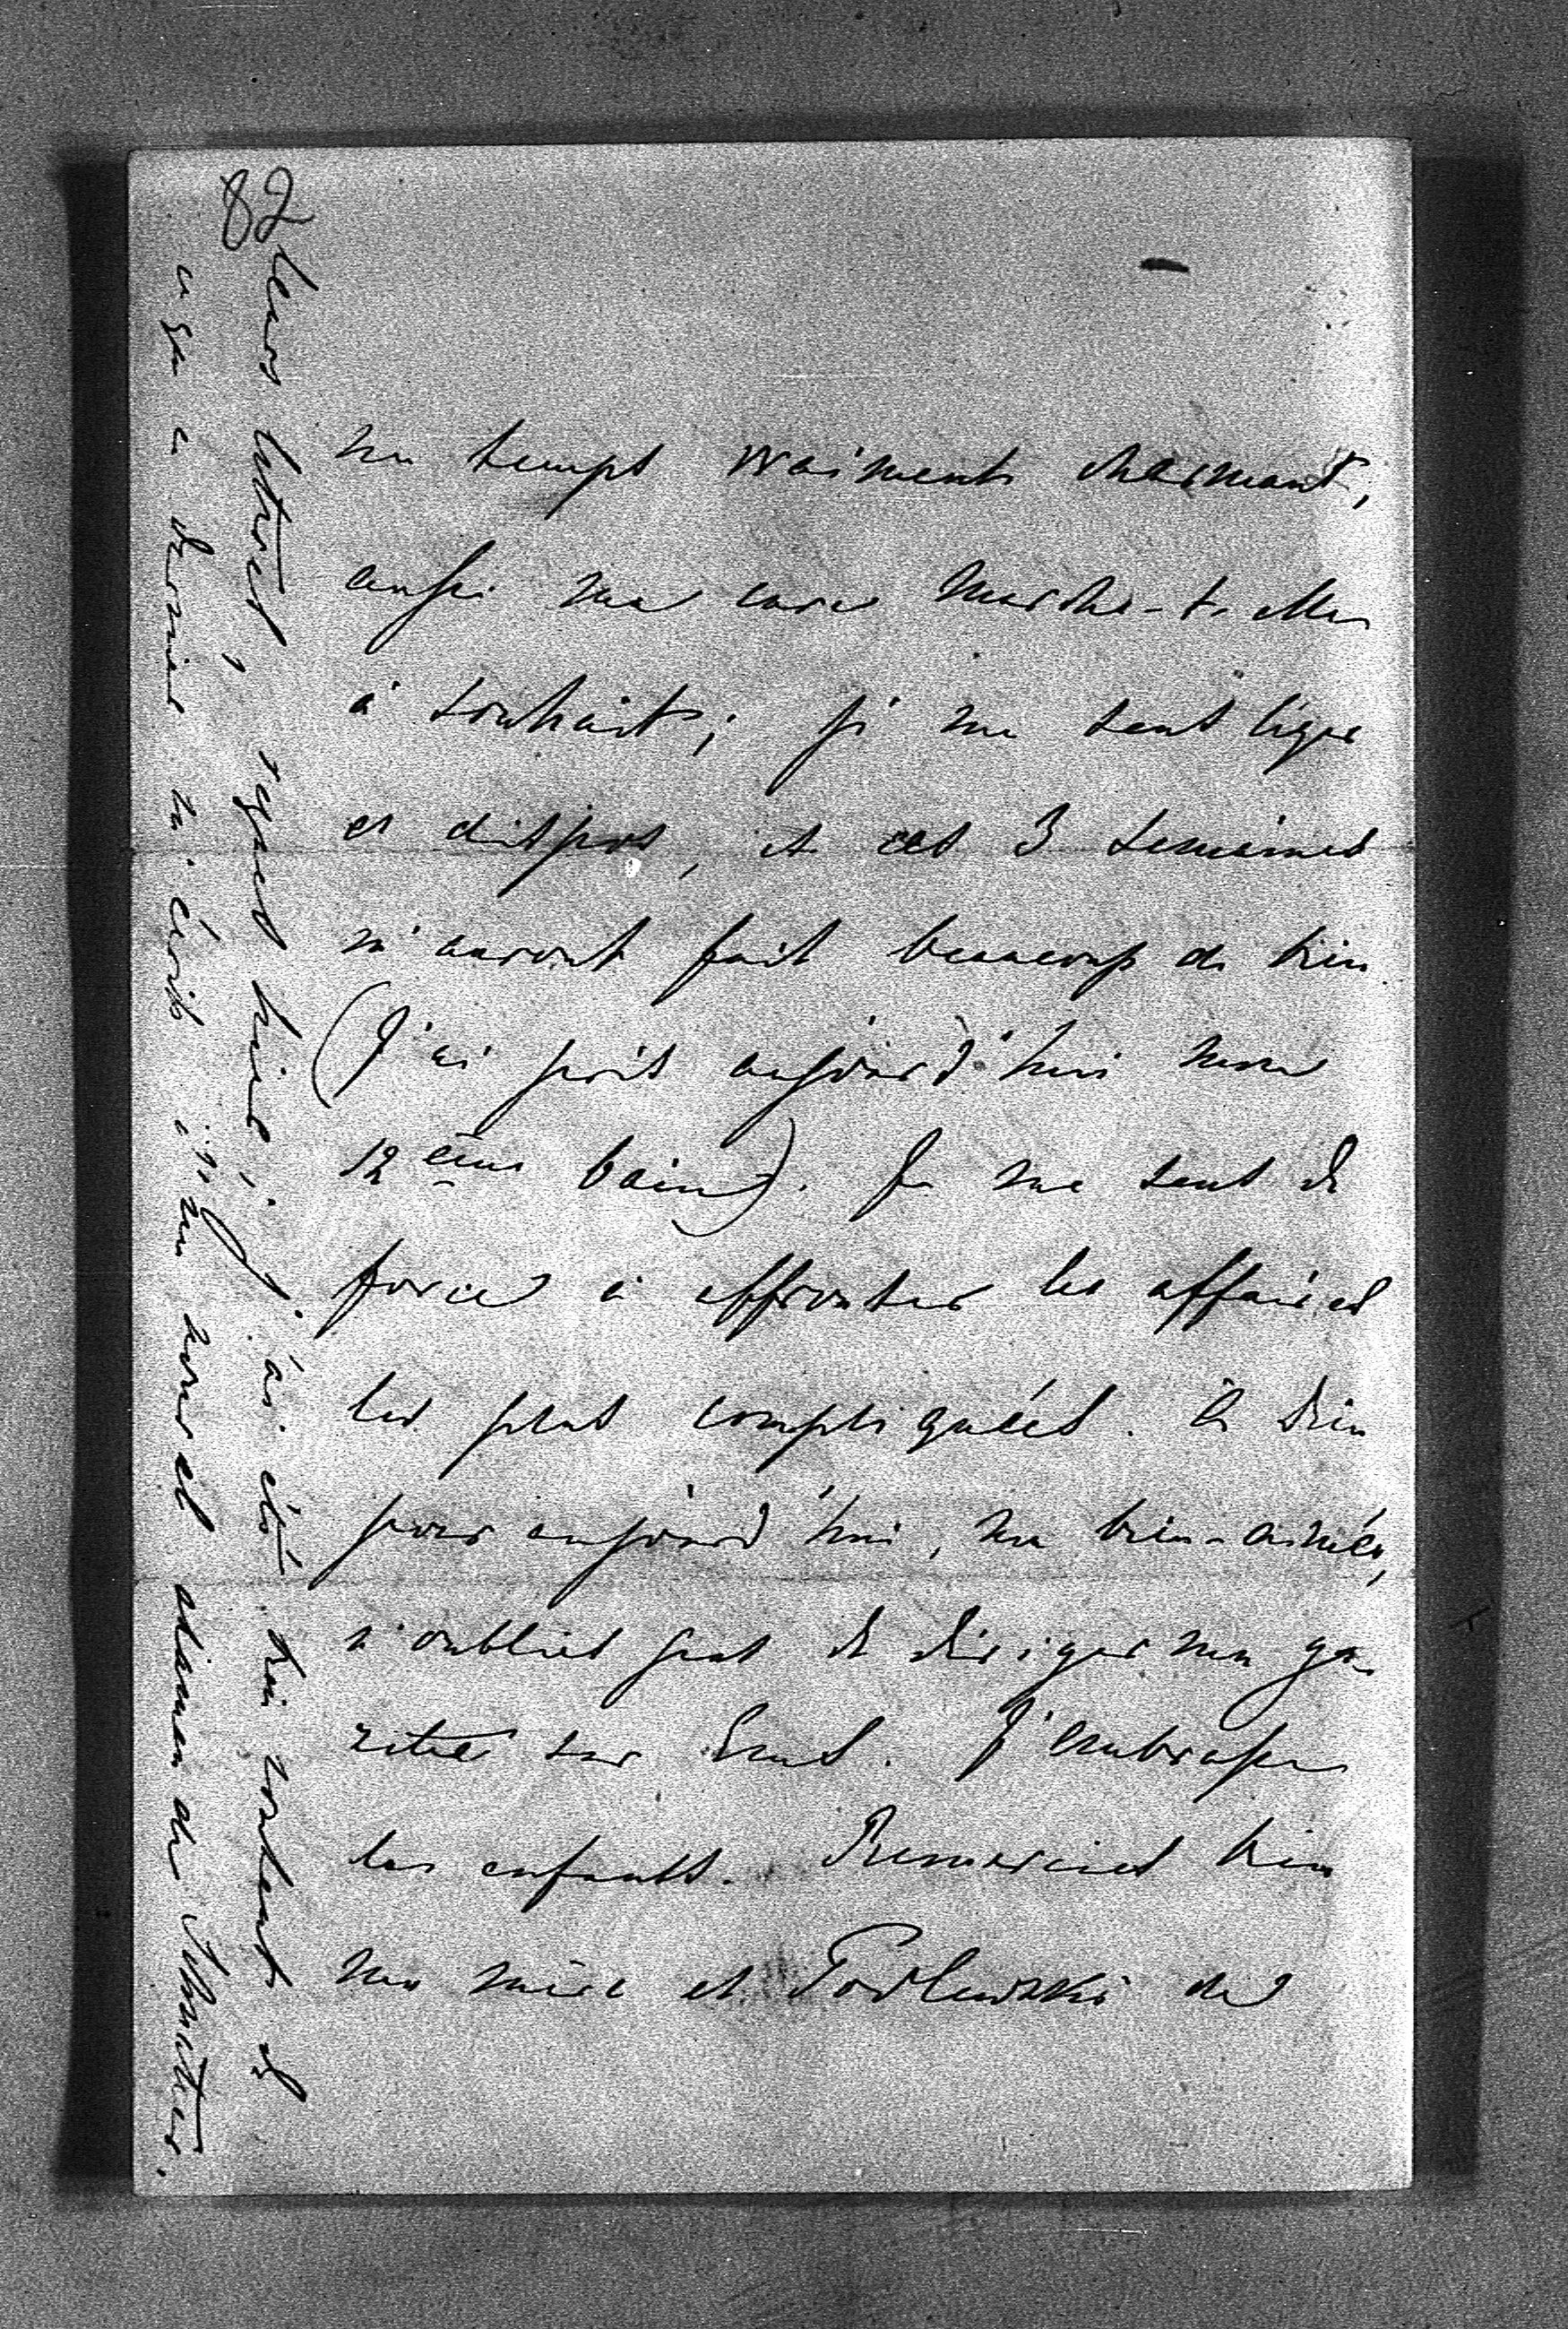 82
un temps vraiment charmant,
aussi ma cure marche-t-elle
à souhait; je me sens léger
et dispos, et ces 3 semaines
m'auront fait beaucoup de bien
(J'ai pris aujourd'hui mon
12ème bain). Je me sens de
force à affronter les affaires
les plus compliquées. A Dieu
pour aujourd'hui, ma bien-aimée,
n'oublies pas de diriger ma ga-
zette sur Ems. J'embrasse
les enfants. Remercies bien
ma mère et Podlewski de
leurs lettres, reçues hier; j'ai été très content de
ce que ce dernier m'écrit